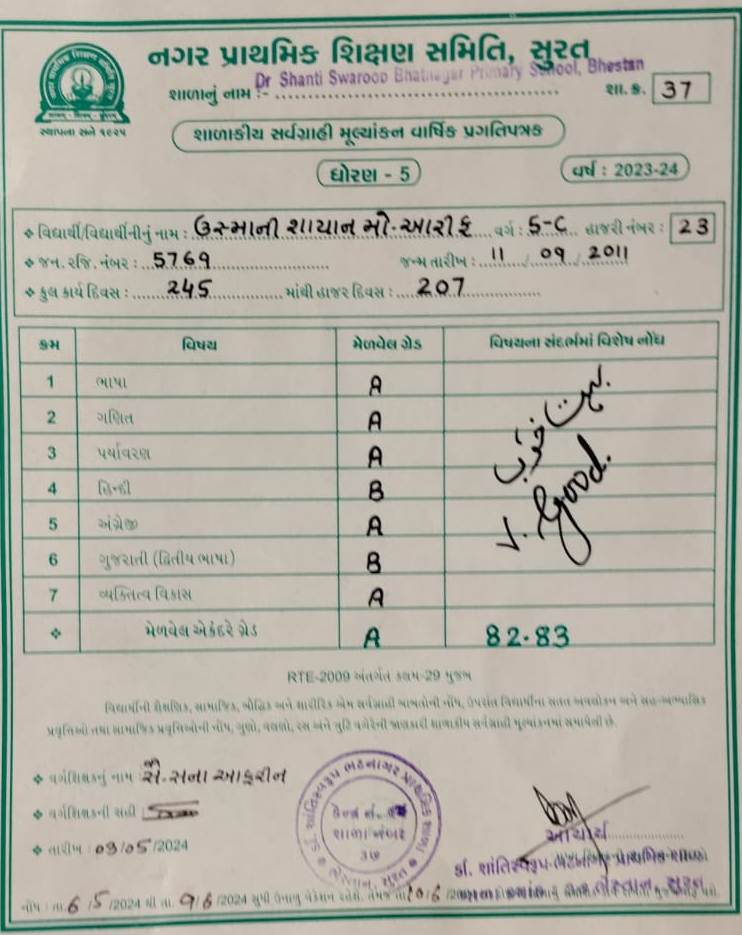 નગર પ્રાથમિક શિક્ષણ સમિતિ, સુરત
Dr Shanti Swaroop Bhatnagar Primary School, Bhestan
શાળાનું નામ :- શા.ક્ર. 37
સ્થાપના સને ૧૯૨૫
શાળાકીય સર્વગ્રાહી મૂલ્યાંકન વાર્ષિક પ્રગતિપત્રક
ધોરણ - 5
વર્ષ : 2023-24
❖ વિદ્યાર્થી/વિદ્યાર્થીનીનું નામ : ઉસ્માની શાયાન મો.આરીફ વર્ગ : 5-C હાજરી નંબર : 23
❖ જન. રજિ. નંબર : 5769 જન્મ તારીખ : 11 / 09 / 2011
❖ કુલ કાર્ય દિવસ : 245 માંથી હાજર દિવસ : 207
ક્રમ વિષય મેળવેલ ગ્રેડ વિષયના સંદર્ભમાં વિશેષ નોંધ
1 ભાષા A
2 ગણિત A
3 પર્યાવરણ A
4 હિન્દી B
5 અંગ્રેજી A
6 ગુજરાતી (દ્વિતીય ભાષા) B
7 વ્યક્તિત્વ વિકાસ A
بہت خوب
v. Good.
❖ મેળવેલ એકંદરે ગ્રેડ A 82.83
RTE-2009 અંતર્ગત કલમ-29 મુજબ
વિદ્યાર્થીની શૈક્ષણિક, સામાજિક, બૌદ્ધિક અને શારીરિક એમ સર્વગ્રાહી બાબતોની નોંધ, ઉપરાંત વિદ્યાર્થીના સતત અવલોકન અને સહ-અભ્યાસિક
પ્રવૃત્તિઓ તથા સામાજિક પ્રવૃત્તિઓની નોંધ, ગુણો, વલણો, રસ અને ત્રુટિ વગેરેની જાણકારી શાળાકીય સર્વગ્રાહી મૂલ્યાંકનમાં સમાવેલી છે.
❖ વર્ગશિક્ષકનું નામ : શૈ.સના આફરીન
❖ વર્ગશિક્ષકની સહી :
❖ તારીખ : 03/05/2024
ડૉ. શાંતિસ્વરૂપ ભટનાગર પ્રાથમિક શાળા
શાળા નંબર
૩૭
ભેસ્તાન, સુરત
આચાર્ય
ડૉ. શાંતિસ્વરૂપ ભટનાગર પ્રાથમિક શાળા
ભેસ્તાન, સુરત
નોંધ : તા. 6/5/2024 થી તા. 9/6/2024 સુધી ઉનાળુ વેકેશન રહેશે. તેમજ તા. 10/6/